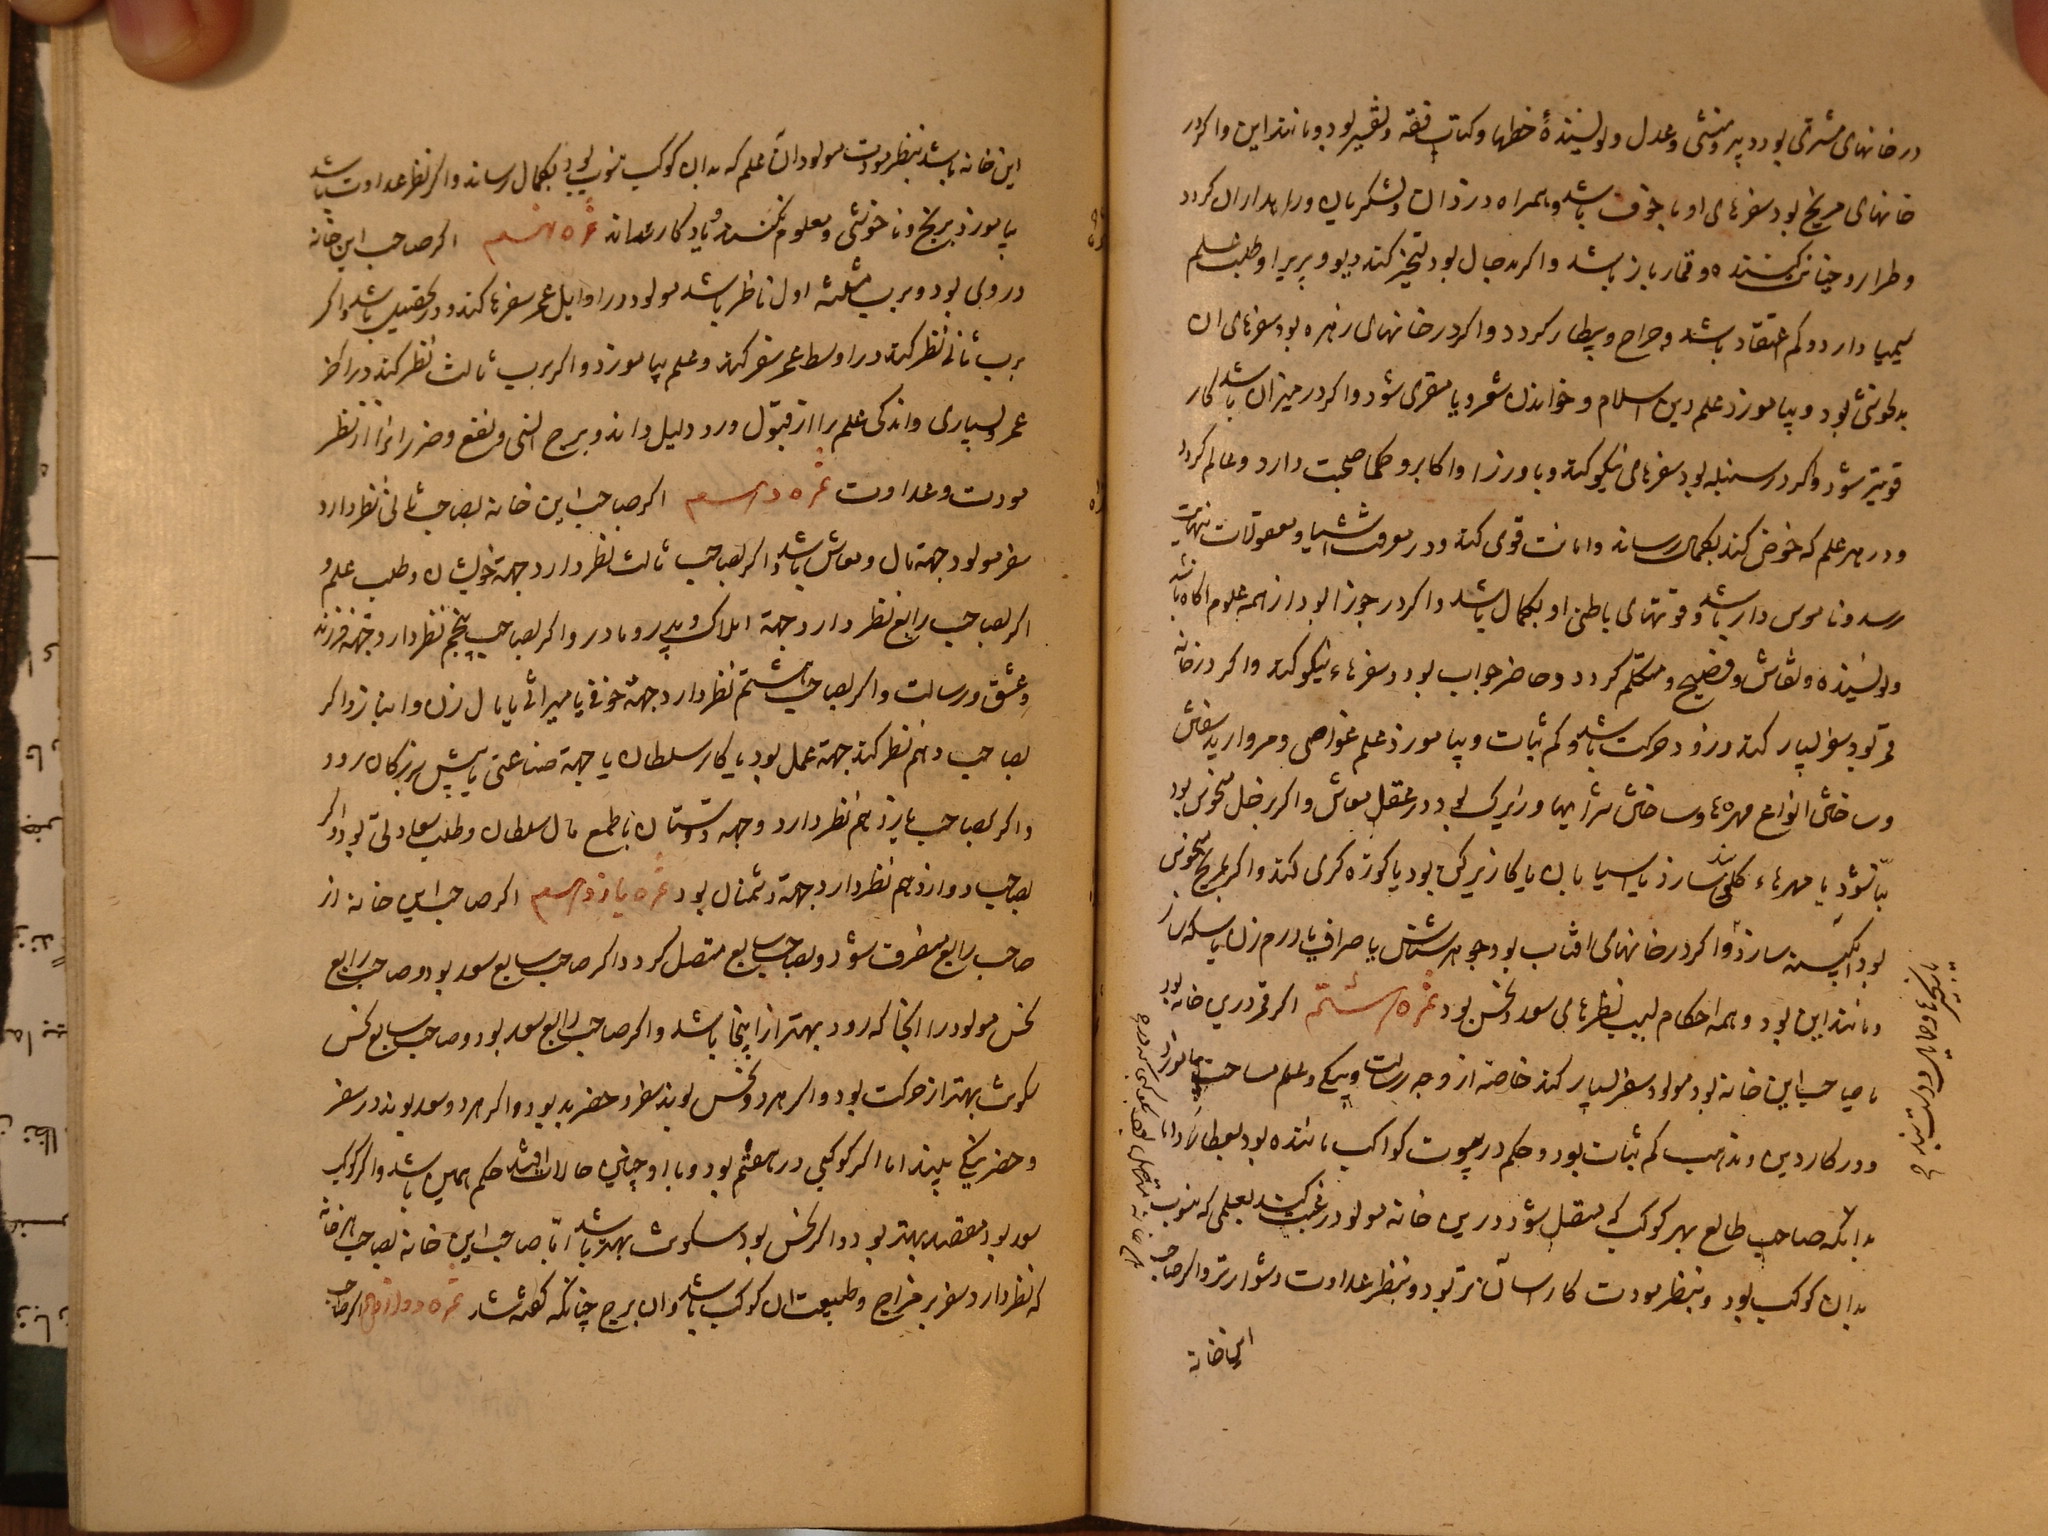 در خانهای مشتری بود دبیر و منشی و عدل و نویسندهٔ خطها و کتاب فقه و تفسیر بود و مانند این و اگر در
خانهای مریخ بود سفرهای او با خوف باشد و همراه دزدان و لشکریان و راهداران گردد
و طرار و خیانت کننده و قمارباز باشد و اگر بدحال بود تسخیر کند دیو و پری را و طلب علم
سیمیا دارد و کم اعتقاد باشد و جراح و بیطار گردد و اگر در خانهای زهره بود سفرهای ان
بدخوشی بود و بیاموزد علم دین اسلام و خواندن شعر و یا مقری شود و اگر در میزان باشد کار
قویتر شود و اگر در سنبله بود سفرهای نیکو کند و با وزرا و اکابر و حکما صحبت دارد و عالم گردد
و در هر علم که خوض کند بکمال رساند و امانت قوی کند و در معرفت اشیا و معقولات بنهایت
رسد و ناموس دار باشد و قوتهای باطنی او بکمال باشد و اگر در جوزا بود از همه علوم اکاه باشد
و نویسنده و نقاش و فصیح و متکلم گردد و حاضر جواب بود و سفرهاء نیکو کند و اگر در خانه
قمر بود سفر بسیار کند و زود حرکت باشد و کم ثبات و بیاموزد علم غواصی و مروارید سفتن
و ساختن انواع مهره‌ها و ساختن شرابها و زیرک بود در عقل معاش و اگر بزحل منحوس بود
بنا شود یا مهرهاء گلی سازد یا اسیابان یا کاریزکن بود یا کوزه گری کند و اگر بمریخ منحوس
بود ابگینه سازد و اگر در خانهای افتاب بود جوهر شناس یا صراف یا درم زن یا سکه زن
و مانند این بود و همه احکام بسبب نظرهای سعد و نحس بود ثمره هشتم اگر قمر درین خانه بود
یا صاحب این خانه بود مولود سفر بسیار کند خاصه از وجه رسالت و پیکی و علم مساحت بیاموزد
و در کار دین و مذهب کم ثبات بود و حکم در بیوت کواکب ماننده بود بعطارد
بدانکه صاحب طالع بهر کوکب که متصل شود درین خانه مولود رغبت کند بعلمی که منسوب
بدان کوکب بود و بنظر مودت کار اسان تر بود و بنظر عداوت دشوارتر و اگر صاحب
این خانه
این خانه باشد بنظر مودت مولود ان علم که بدان کوکب منسوب بود بکمال رساند و اگر نظر عداوت باشد
بیاموزد برنج و ناخوشی و معلوم نکند و یاد کار نماند ثمره نهم اگر صاحب این خانه
در وی بود و برب مثلثه اول ناظر باشد مولود در اوایل عمر سفرها کند و در تحصیل باشد و اگر
برب ثانی نظر کند در اوسط عمر سفر کند و علم بیاموزد و اگر برب ثالث نظر کند در اخر
عمر و بسیاری و اندکی علم را از قبول و رد دلیل داند و برج انسی و نفع و ضرر انرا از نظر
مودت و عداوت ثمره دهم اگر صاحب این خانه بصاحب ثانی نظر دارد
سفر مولود جهة مال و معاش باشد و اگر بصاحب ثالث نظر دارد جهة خویشان و طلب علم و
اگر بصاحب رابع نظر دارد جهة املاک و پدر و مادر و اگر بصاحب پنجم نظر دارد جهة فرزند
و عشق و رسالت و اگر بصاحب هشتم نظر دارد جهة خوفی یا میراثی یا مال زن و انباز و اگر
بصاحب دهم نظر کند جهة عمل بود یا کار سلطان یا جهة صناعتی یا پیش بزرگان رود
و اگر بصاحب یازدهم نظر دارد و جهة دوستان یا طمع مال سلطان و طلب سعادتی بود و اگر
بصاحب دوازدهم نظر دارد جهة دشمنان بود ثمره یازدهم اگر صاحب این خانه از
صاحب رابع منصرف شود و بصاحب سابع متصل گردد اگر صاحب سابع سعد بود و صاحب رابع
نحس مولود را انجا که رود بهتر از اینجا باشد و اگر صاحب رابع سعد بود و صاحب سابع نحس
سکونش بهتر از حرکت بود و اگر هر دو نحس بوند سفر و حضر بد بود و اگر هر دو سعد بوند در سفر
و حضر نیکی بیند اما اگر کوکبی در هفتم بود و با او چنین حالات افتد حکم همین باشد و اگر کوکب
سعد بود مقصد بهتر بود و اگر نحس بود سکونش بهتر باشد اما صاحب این خانه بصاحب هر خانه
که نظر دارد سفر بر مزاج و طبیعت ان کوکب باشد و ان برج چنانکه گفته شد ثمره دوازدهم اگر صاحب